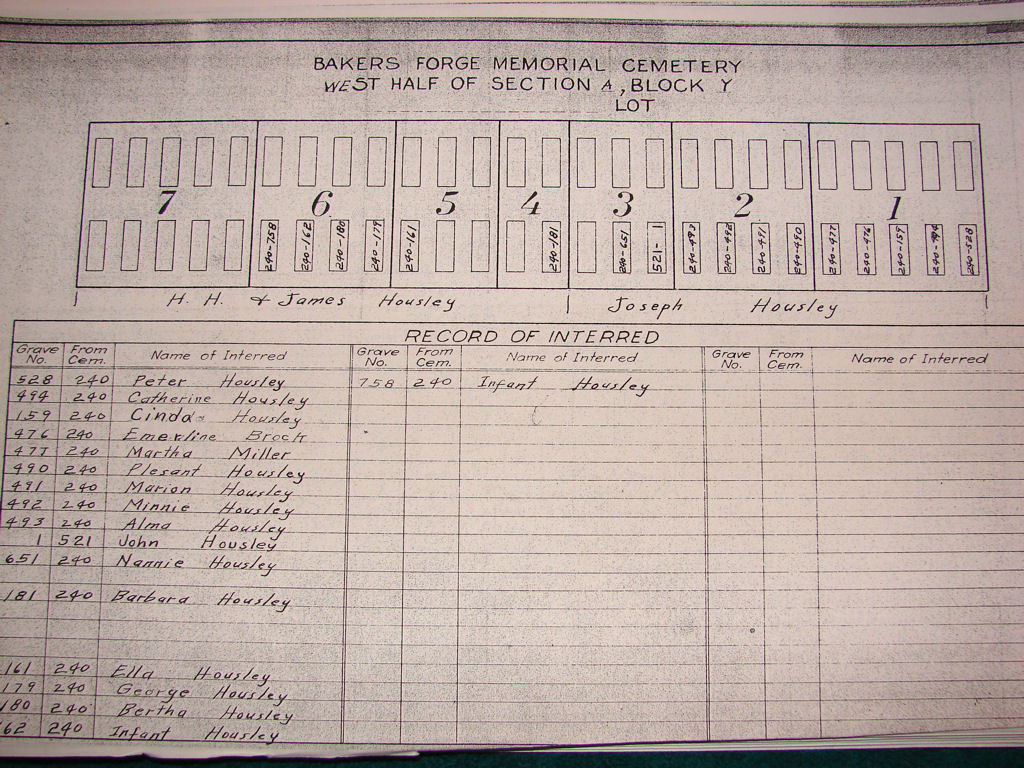 BAKERS FORGE MEMORIAL CEMETERY
WEST HALF OF SECTION A, BLOCK Y
LOT
7 6 5 4 3 2 1
240-758 240-162 240-180 240-179 240-161 240-181 240-651 521-1 240-493 240-492 240-491 240-490 240-477 240-476 240-159 240-494 240-528
H. H. & James Housley Joseph Housley
RECORD OF INTERRED
Grave No. From Cem. Name of Interred Grave No. From Cem. Name of Interred Grave No. From Cem. Name of Interred
528 240 Peter Housley 758 240 Infant Housley
494 240 Catherine Housley
159 240 Cinda Housley
476 240 Emerline Brock
477 240 Martha Miller
490 240 Plesant Housley
491 240 Marion Housley
492 240 Minnie Housley
493 240 Alma Housley
1 521 John Housley
651 240 Nannie Housley
181 240 Barbara Housley
161 240 Ella Housley
179 240 George Housley
180 240 Bertha Housley
62 240 Infant Housley